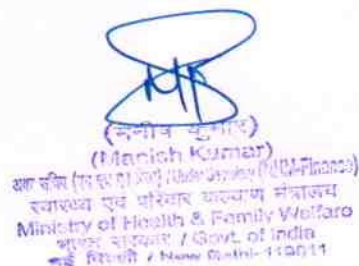 (मनीष कुमार)
(Manish Kumar)
अवर सचिव / Under Secretary (NHM-Finance)
स्वास्थ्य एवं परिवार कल्याण मंत्रालय
Ministry of Health & Family Welfare
भारत सरकार / Govt. of India
नई दिल्ली / New Delhi-110011